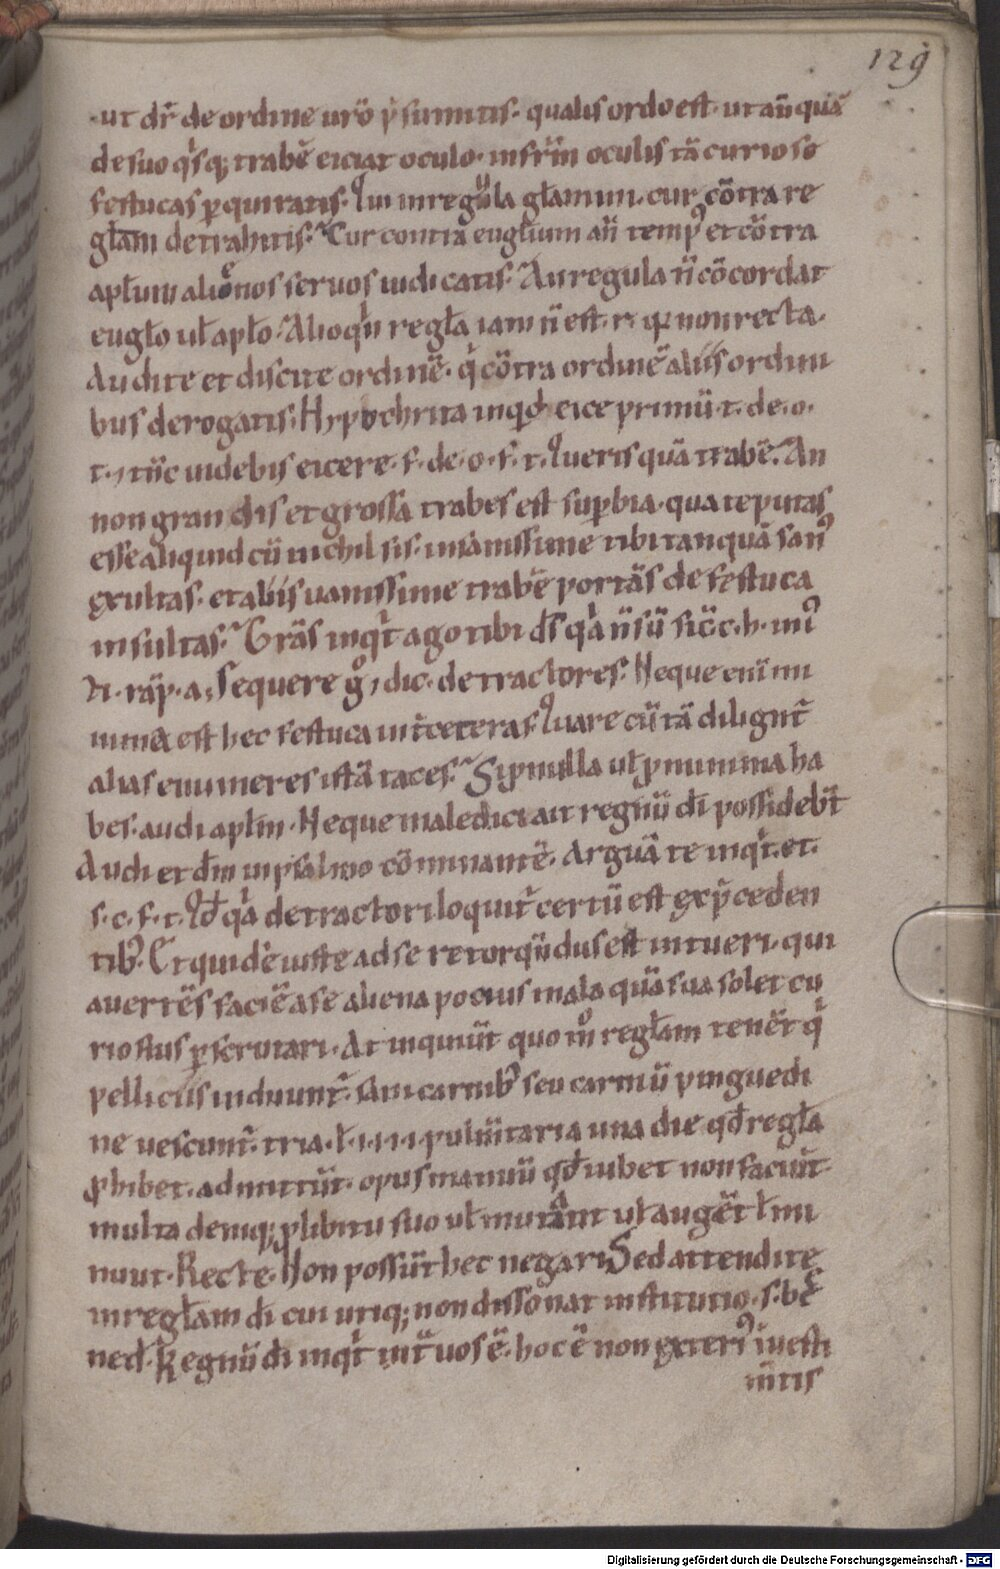 129
ut dr̄ de ordine urō p̄sumitis· qualis ordo est· ut an̄ quā
de suo q̇sq; trabē eiciat oculo· in fr̄m oculis tā curioso
festucas ꝑquiratis· Qui in regula gl̄amini· cur cōtra re
gl̄am detrahitis· Cur contra eugl̄ium an̄ tempꝰ et cōtra
apl̄um alienos seruos iudicatis· An regula n̄ cōcordat
eugl̄o ul̄ apl̄o· Alioq̇n regl̄a iam n̄ est· r· qꝛ non recta·
Audite et discite ordinē· q̇ cōtra ordinē aliis ordini
bus derogatis· Hypochrita inqd̄ eice primū· t· de· o·
t· ⁊ tūc uidebis eicere· f· de· o· f· t· Queris quā trabē· An
non grandis et grossa trabes est suꝑbia· qua te putas
esse aliquid cū nichil sis· inanissime tibi tanquā sanꝰ
exultas· et aliis uanissime trabē portās de festuca
insultas· Grās inq̇t ago tibi ds̄ q̇a n̄ sū sic̄· c· h· inꝰ
N· rāp· a; Sequere gͦ ⁊ dic· detractores· Neque enī mi
nima est hec festuca int̄ ceteras Quare cū tā diligent̄
alias enumeres istā taces· Si ꝓ nulla ul̄ ꝓ minima ha
bes· audi apl̄m· Neque maledici ait regnū dī possidebt̄
Audi et dm̄ in psalmo cōminantē· Arguā te inq̇t· et·
s· c· f· t· Qd̄ q̇a detractori loquit̄ certū est ex p̄ceden
tibꝰ· Et quidē iuste ad se retorqūdus est intueri· qui
auertēs faciē a se aliena pocius mala quā sua solet cu
riosius ꝑscrutari· At inquiūt quo mͦ regl̄am tenēt q̇
pelliciis induunt̄· sani carnibꝰ seu carniū pinguedi
ne uescunt̄· tria· l̄· ı· ı· ı· ı· pulm̄taria una die qd̄ regl̄a
ꝓhibet· admittūt· opus manuū qd̄ iubet non faciūt·
multa deniq; ꝓ libitu suo ul̄ mutānt ul̄ augēt l̄ mi
nuut· Recte· Non possūt hec negari· Sed attendite
in regl̄am dī cui utiq; non dissonat institutio· s· bē
ned̄· Regnū dī inq̇t int̄ uos ē· hoc ē non exteriꝰ ī uesti
m̄tis
Digitalisierung gefördert durch die Deutsche Forschungsgemeinschaft - DFG